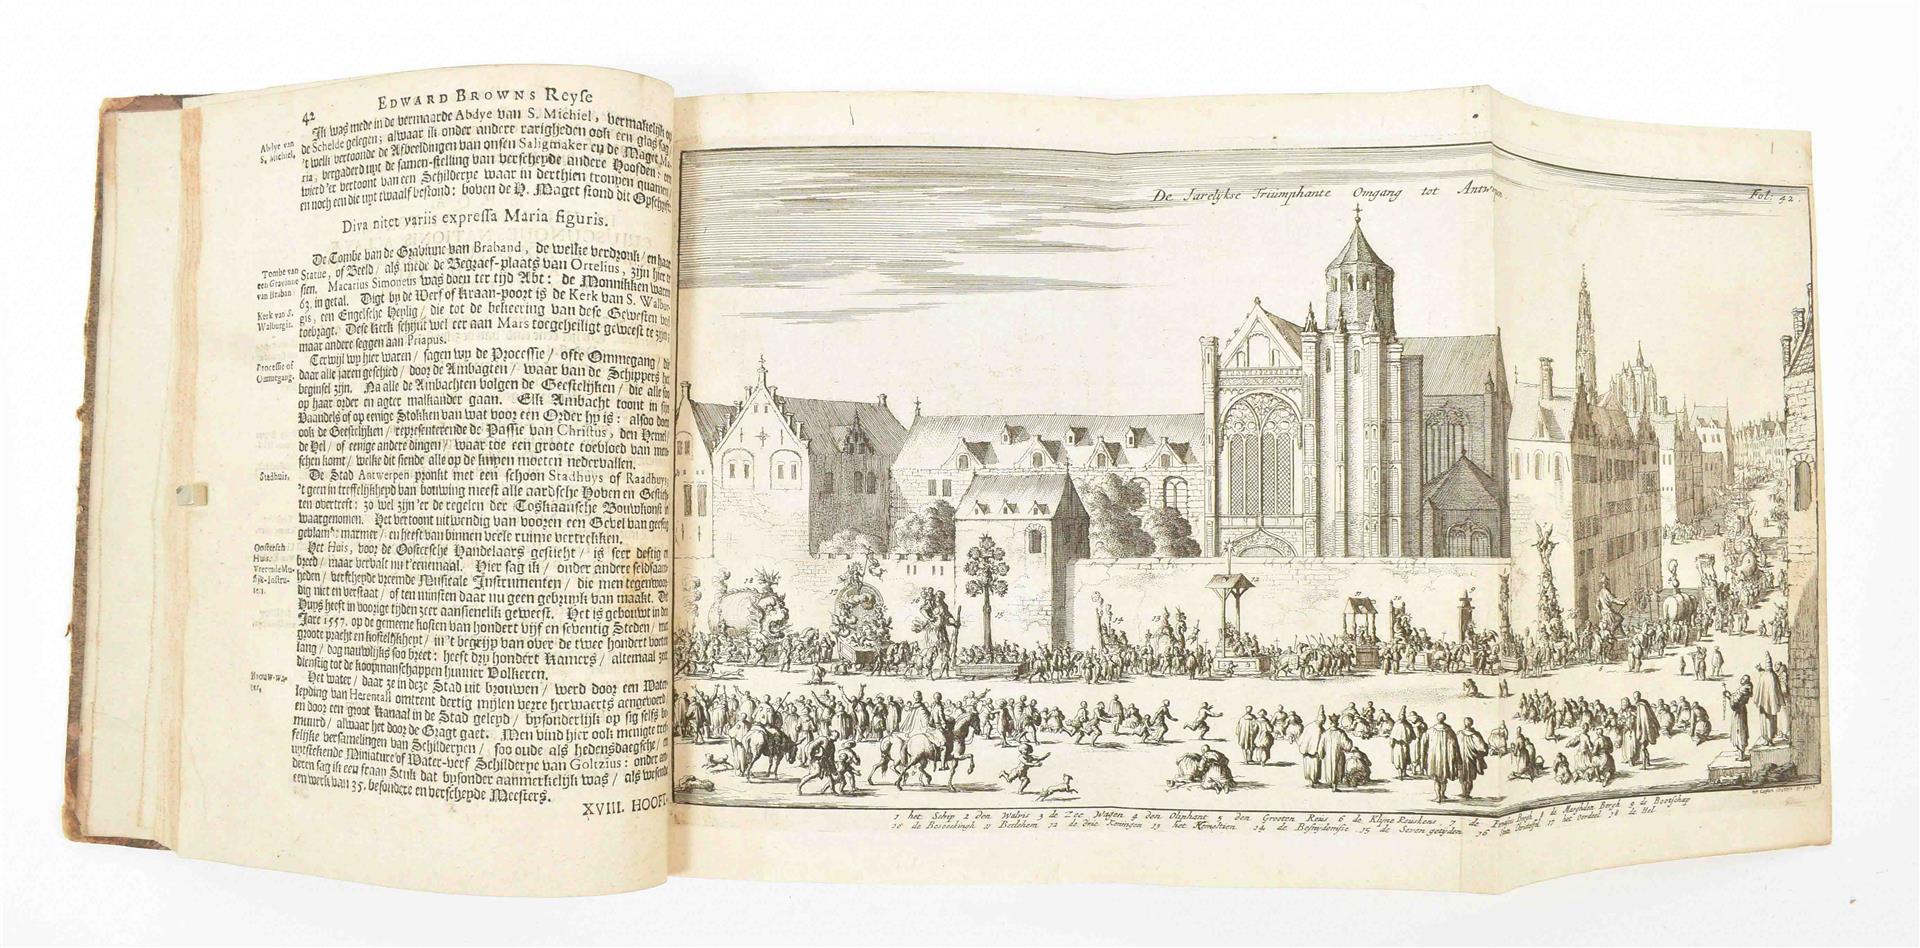 EDWARD BROWNS Reyse
42
Ik was mede in de vermaarde Abdye van S. Michiel, vermakelijk op
de Schelde gelegen; alwaar ik onder andere rarigheden ook een glas sag/
't welk vertoonde de Afbeeldingen van onsen Saligmaker en de Maget Ma-
ria, vergaderd uyt de samen-stelling van verscheyde andere Hoofden: ook
wierd'er vertoont van een Schilderye waar in derthien tronyen quamen/
en noch een die uyt twaalf bestond: boven de H. Maget stond dit Opschrift.
Abdye van
S. Michiel.
Diva nitet variis expressa Maria figuris.
De Tombe van de Gravinne van Braband, de welke verdronk/ en haar
Statue, of Beeld/ als mede de Begraef-plaats van Ortelius, zijn hier te
sien. Macarius Simoneus was doen ter tijd Abt: de Monnikken waren
63. in getal. Digt by de Werf of Kraan-poort is de Kerk van S. Walbur-
gis, een Engelsche Heylig/ die tot de bekeering van dese Gewesten veel
toebragt. Dese Kerk schijnt wel eer aan Mars toegeheiligt geweest te zijn;
maar andere seggen aan Priapus.
Tombe van
een Gravinne
van Braban.
Kerk van S.
Walburgis.
Terwijl wy hier waren/ sagen wy de Processie/ ofte Ommegang/ die
daar alle jaren geschied/ door de Ambagten/ waar van de Schippers het
beginsel zijn. Na alle de Ambachten volgen de Geestelijken/ die alle soo
op haar order en agter malkander gaan. Elk Ambacht toont in sijn
Vaandels of op eenige Stokken van wat voor een Order hy is: alsoo doen
ook de Geestelijken/ representerende de Passie van Christus, den Hemel/
de Hel/ of eenige andere dingen/ waar toe een groote toebloed van men-
schen komt/ welke dit siende alle op de knyen moeten nedervallen.
Processie of
Ommegang.
De Stad Antwerpen pronkt met een schoon Stadhuys of Raadhuys/
't geen in treffelijkheyd van bouwing meest alle aardsche Hoven en Gestich-
ten overtreft: zo wel zijn'er de regelen der Toskaansche Bouwkonst in
waargenomen. Het vertoont uitwendig van vooren een Gevel van geestig
gevlamt marmer/ en heeft van binnen veele ruime vertrekken.
Stadhuis.
Het Huis, voor de Oostersche Handelaars gesticht/ is seer deftig en
breed/ maar vervalt nu t'eenemaal. Hier sag ik/ onder andere seldsaam-
heden/ verscheyde vreemde Musicale Instrumenten/ die men tegenwoor-
dig niet en verstaat/ of ten minsten daar nu geen gebruyk van maakt. De
Huys heeft in voorige tijden zeer aansienelik geweest. Het is gebouwt in den
Jare 1557. op de gemeene kosten van hondert vijf en seventig Steden/ met
groote pracht en kostelijkheyt/ in 't begrijp van over de twee hondert voeten
lang/ dog nauwlijks soo breet: heeft dry hondert Kamers/ altemaal zeer
dienstig tot de koopmanschappen hunner Volkeren.
Oostersch
Huis.
Vreemde Mu-
sijk-Instru-
Het water/ daar ze in deze Stad uit brouwen/ werd door een Water-
leyding van Herentall omtrent dertig mijlen verre herwaerts aengevoerd/
en door een groot Kanaal in de Stad geleyd/ bysonderlijk op sig selfs be-
muurd/ alwaar het door de Gragt gaet. Men vind hier ook menigte tref-
felijke versamelingen van Schilderyen/ soo oude als hedensdaegsche/ en
uytstekende Miniature of Water-verf Schilderye van Goltzius: onder an-
deren sag ik een fraay Stuk dat bysonder aanmerkelijk was/ als wesende
een werk van 35. besondere en verscheyde Meesters.
Brouw-wa-
ter.
XVIII. HOOFT-
De Jarelijkse Triumphante Omgang tot Antwerpen.
Fol: 42.
1 het Schip 2 den Walvis 3 de Zee Wagen 4 den Oliphant 5 den Grooten Reus 6 de Klyne Reuskens 7 de Parnassus Bergh 8 de Maeghden Bergh 9 de Bootschap
10 de Besoeckingh 11 Betlehem 12 de drie Koningen 13 het Kemeltien 14 de Besnydenisse 15 de Seven getyden 16 17 het Oordeel 18 de Hel